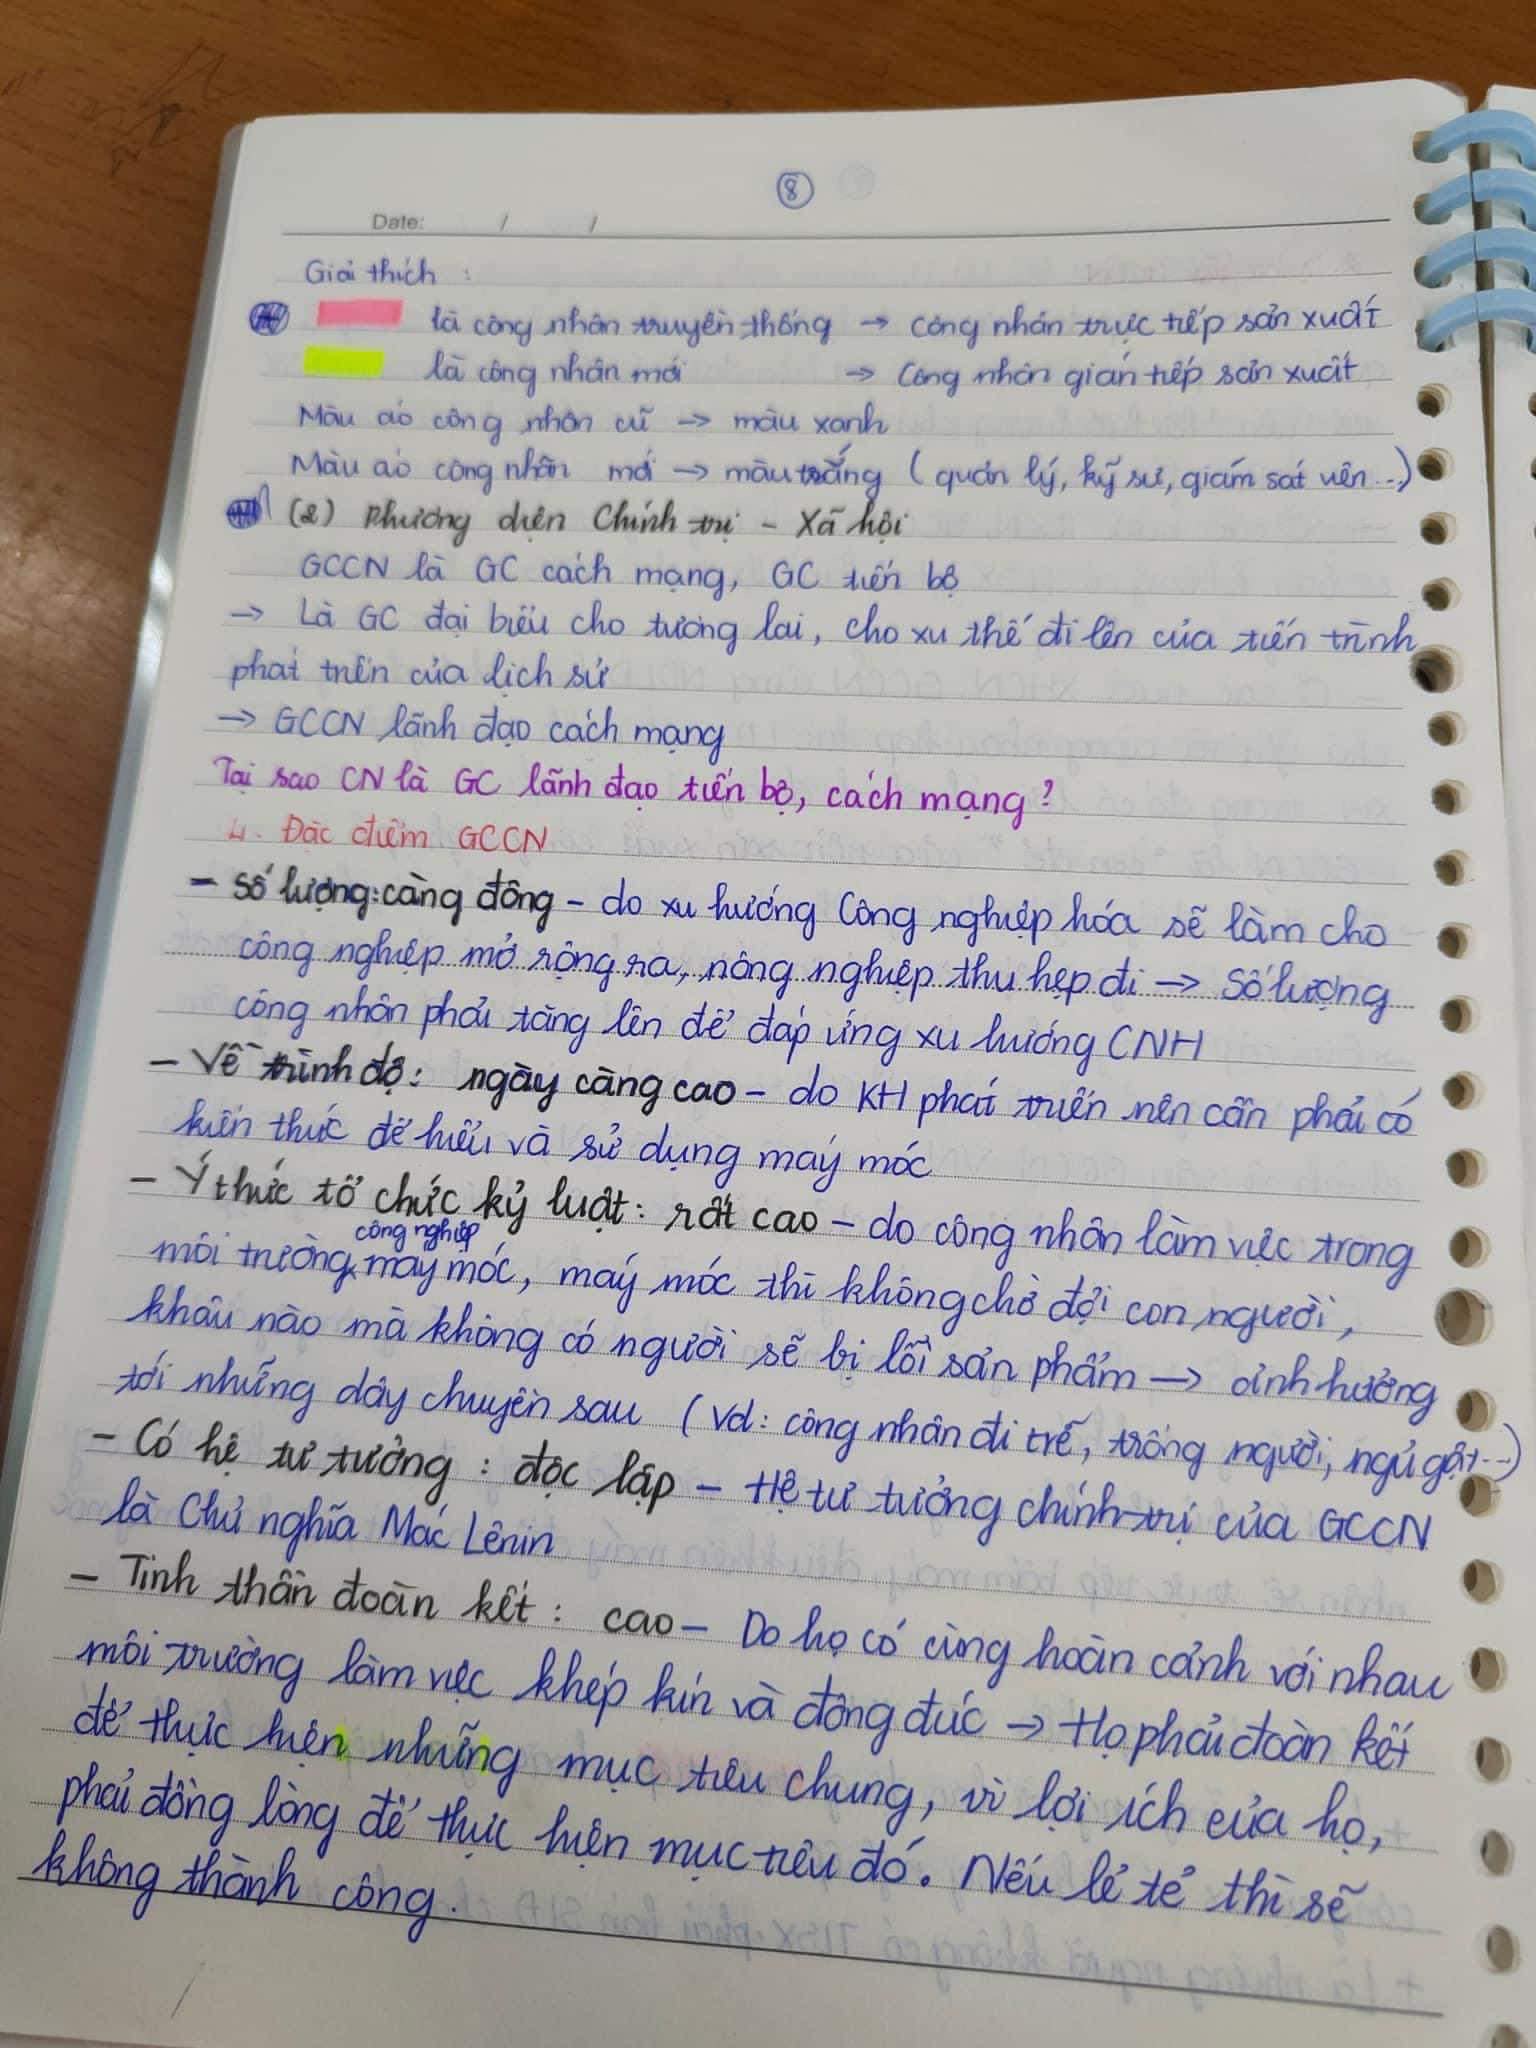 8
Date: / /
Giải thích :
là công nhân truyền thống → công nhân trực tiếp sản xuất
là công nhân mới → công nhân gián tiếp sản xuất
Màu áo công nhân cũ → màu xanh
Màu áo công nhân mới → màu trắng ( quản lý, kỹ sư, giám sát viên...)
(2) Phương diện Chính trị - Xã hội
GCCN là GC cách mạng, GC tiến bộ
→ Là GC đại biểu cho tương lai, cho xu thế đi lên của tiến trình
phát triển của lịch sử
→ GCCN lãnh đạo cách mạng
Tại sao CN là GC lãnh đạo tiến bộ, cách mạng?
4. Đặc điểm GCCN
- Số lượng: càng đông - do xu hướng Công nghiệp hóa sẽ làm cho
công nghiệp mở rộng ra, nông nghiệp thu hẹp đi → Số lượng
công nhân phải tăng lên để đáp ứng xu hướng CNH
- Về trình độ: ngày càng cao - do KH phát triển nên cần phải có
kiến thức để hiểu và sử dụng máy móc
- Ý thức tổ chức kỷ luật: rất cao - do công nhân làm việc trong
môi trường công nghiệp máy móc, máy móc thì không chờ đợi con người,
khâu nào mà không có người sẽ bị lỗi sản phẩm → ảnh hưởng
tới những dây chuyền sau (Vd: công nhân đi trễ, trống người, ngủ gật...)
- Có hệ tư tưởng : độc lập - Hệ tư tưởng chính trị của GCCN
là Chủ nghĩa Mác Lênin
- Tinh thần đoàn kết : cao - Do họ có cùng hoàn cảnh với nhau
môi trường làm việc khép kín và đông đúc → Họ phải đoàn kết
để thực hiện những mục tiêu chung, vì lợi ích của họ,
phải đồng lòng để thực hiện mục tiêu đó. Nếu lẻ tẻ thì sẽ
không thành công.